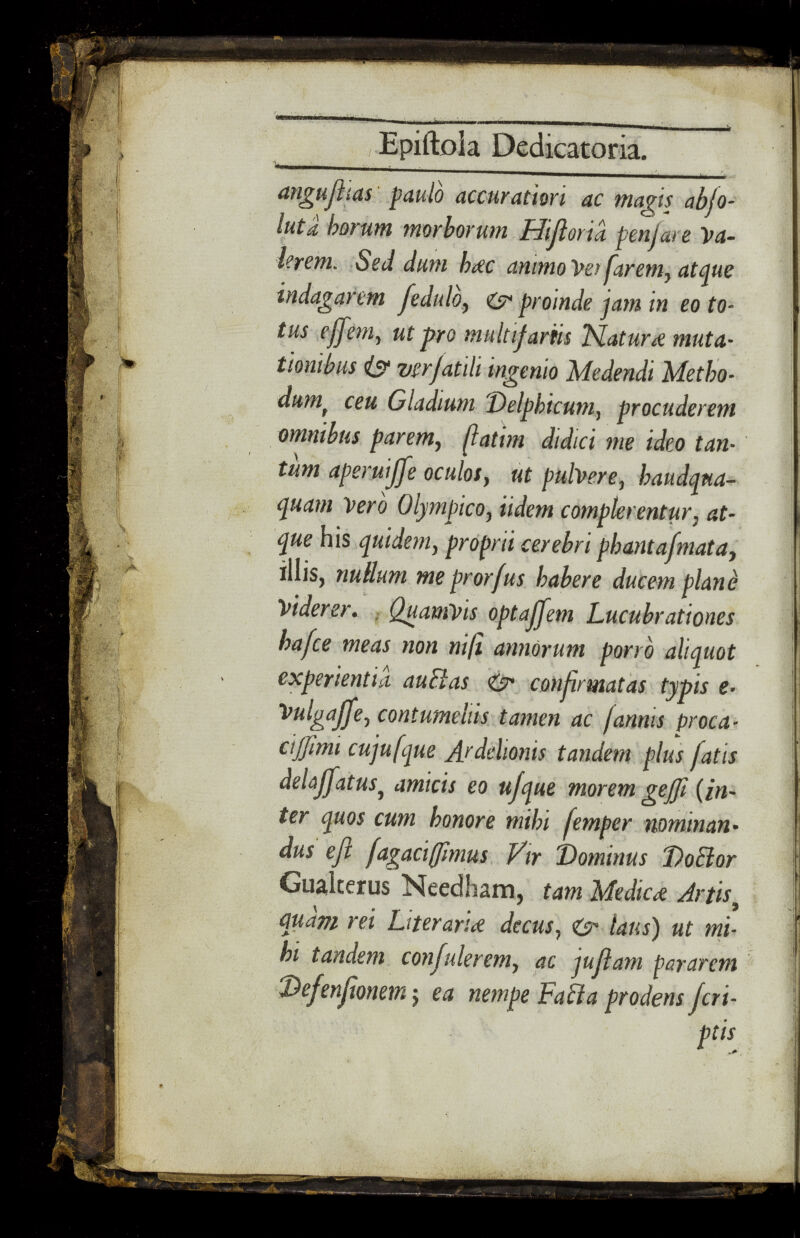 Epiſtola Dedicatoria.
anguſtias paulò accuratiori ac magis abſo-
lutâ horum morborum Hiſtoriâ penſare va-
lerem. Sed dum hæc animo verſarem, atque
indagarem ſedulò, & proinde jam in eo to-
tus eſſem, ut pro multifariis Naturæ muta-
tionibus & verſatili ingenio Medendi Metho-
dum, ceu Gladium Delphicum, procuderem
omnibus parem, ſtatim didici me ideo tan-
tùm aperuiſſe oculos, ut pulvere, haudqua-
quam verò Olympico, iidem complerentur, at-
que his quidem, proprii cerebri phantaſmata,
illis, nullum me prorſus habere ducem planè
viderer. Quamvis optaſſem Lucubrationes
haſce meas non niſi annorum porrò aliquot
experientiâ auctas & confirmatas typis e-
vulgaſſe, contumeliis tamen ac ſannis proca-
ciſſimi cujuſque Ardelionis tandem plus ſatis
delaſſatus, amicis eo uſque morem geſſi (in-
ter quos cum honore mihi ſemper nominan-
dus eſt ſagaciſſimus Vir Dominus Doctor
Gualterus Needham, tam Medicæ Artis,
quàm rei Literariæ decus, & laus) ut mi-
hi tandem conſulerem, ac juſtam pararem
Defenſionem; ea nempe Facta prodens ſcri-
ptis